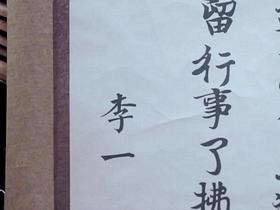 留行事了拂
李一